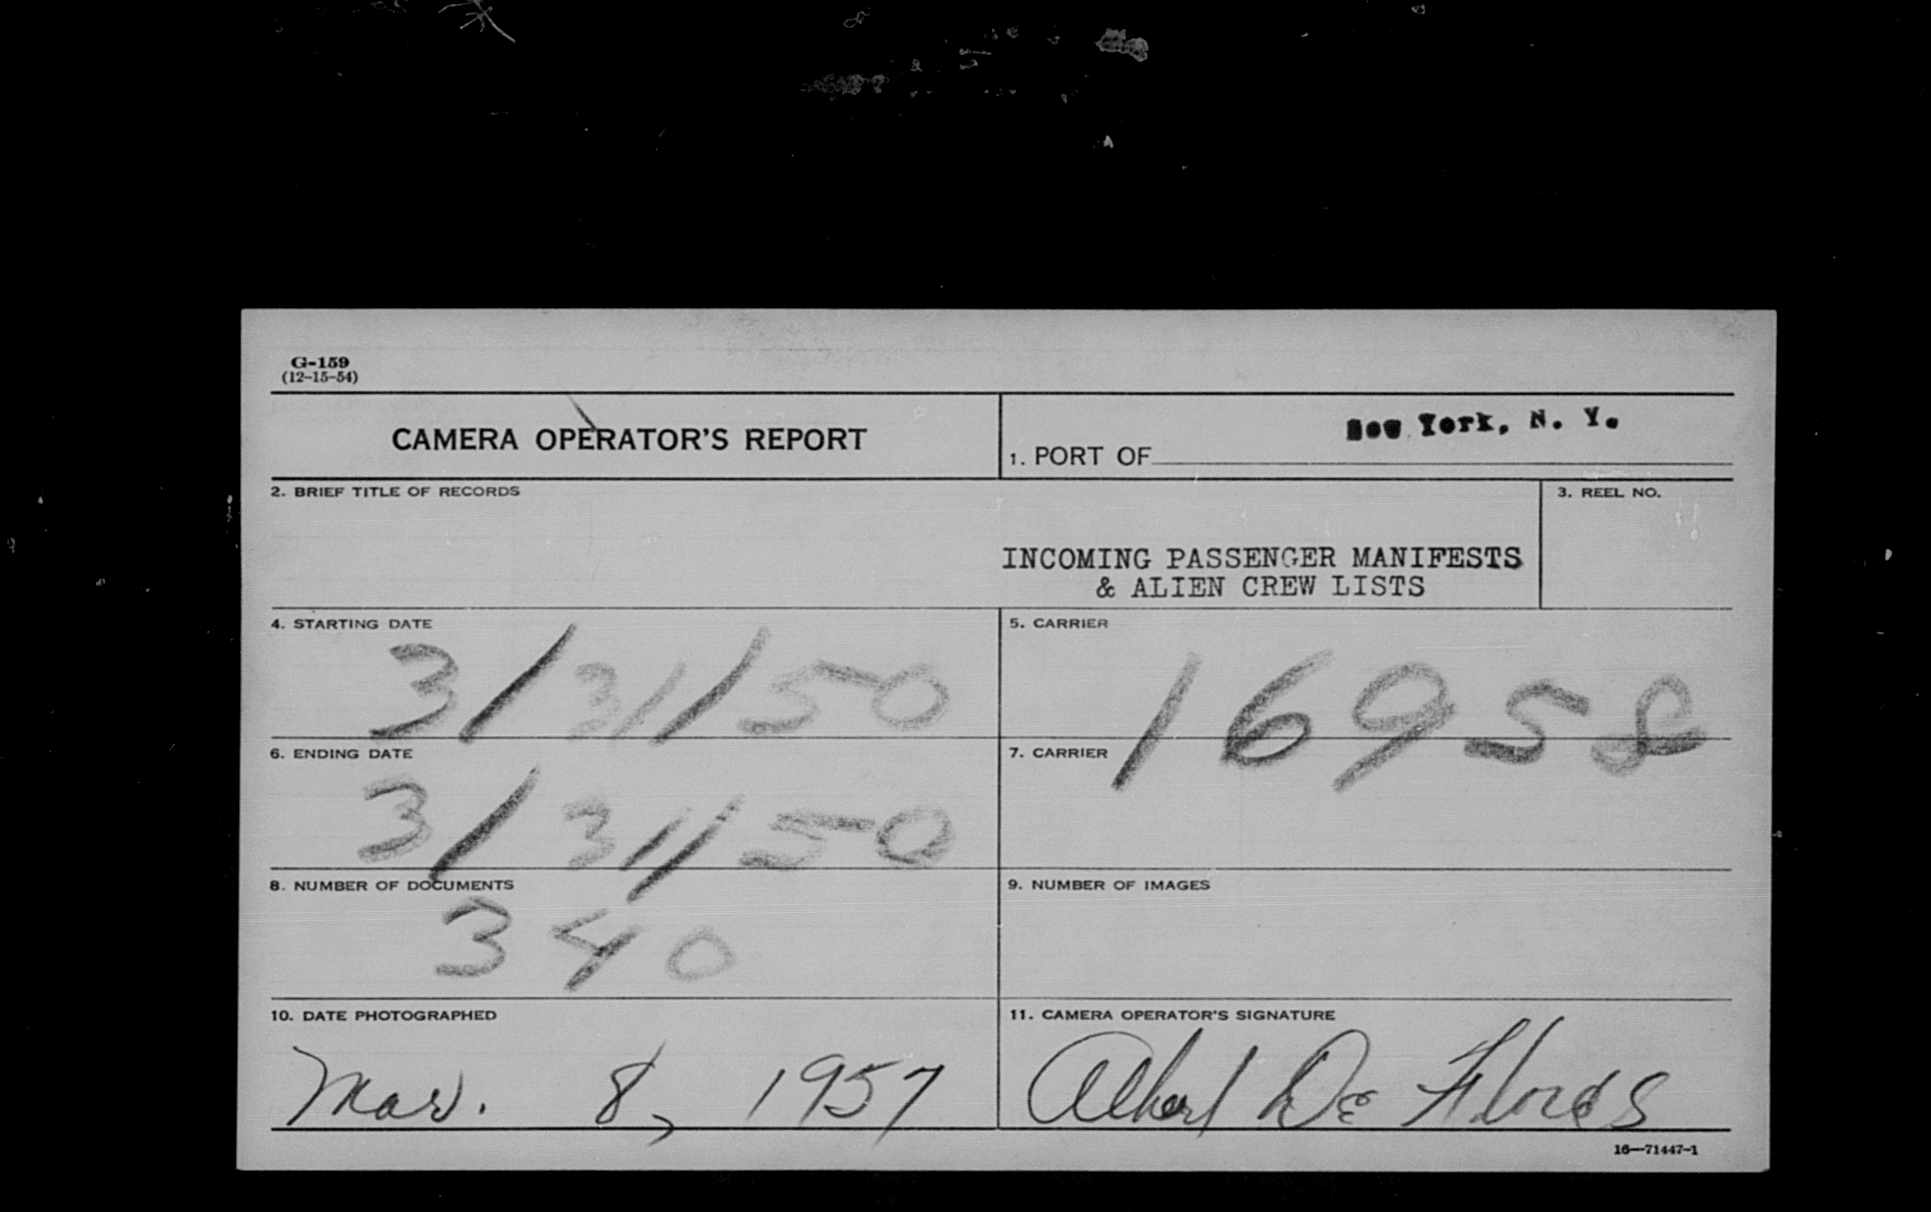 G-159
(12-15-54)
CAMERA OPERATOR'S REPORT
1. PORT OF New York, N. Y.
2. BRIEF TITLE OF RECORDS
INCOMING PASSENGER MANIFESTS
& ALIEN CREW LISTS
3. REEL NO.
4. STARTING DATE
3/31/50
5. CARRIER
16958
6. ENDING DATE
3/31/50
7. CARRIER
8. NUMBER OF DOCUMENTS
340
9. NUMBER OF IMAGES
10. DATE PHOTOGRAPHED
Mar. 8, 1957
11. CAMERA OPERATOR'S SIGNATURE
Albert De Flores
16—71447-1